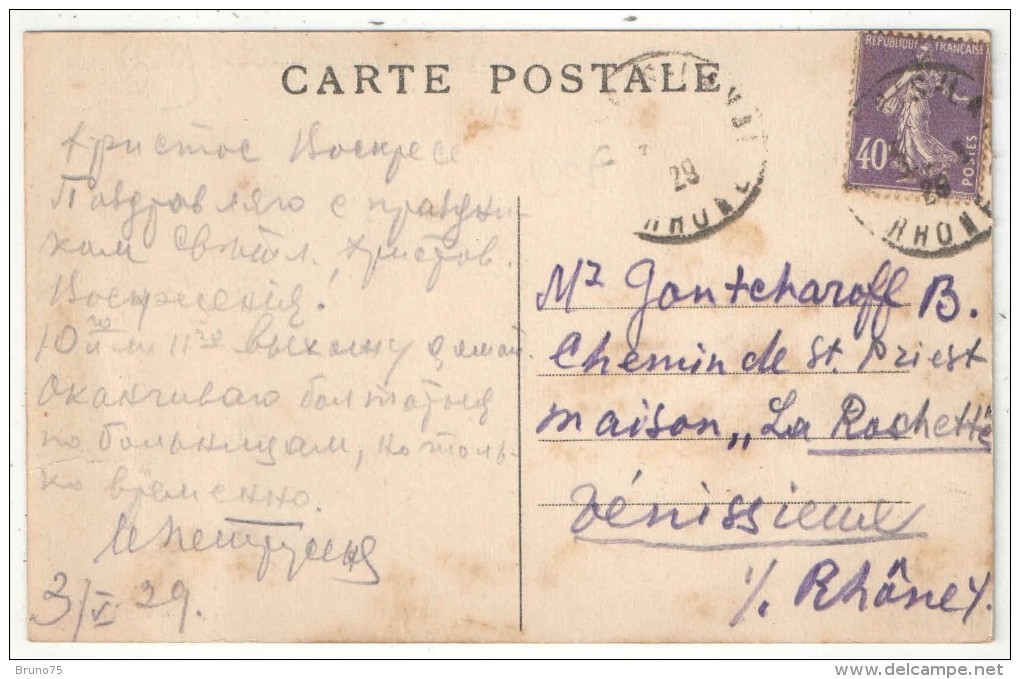 CARTE POSTALE
RÉPUBLIQUE FRANÇAISE
40c
POSTES
29
RHONE
29
RHONE
Христос Воскресе
Поздравляю с праздни-
ком Свѣтл. Христов.
Воскресенія!
10го или 11го выхожу домой.
Оканчиваю болтаться
по больницам, но толь-
ко временно.
3/V 29.
Mr Gontcharoff B.
Chemin de St. Priest
maison „La Rochette
Vénissieux
/. Rhône /.
Bruno75
delcampe.net